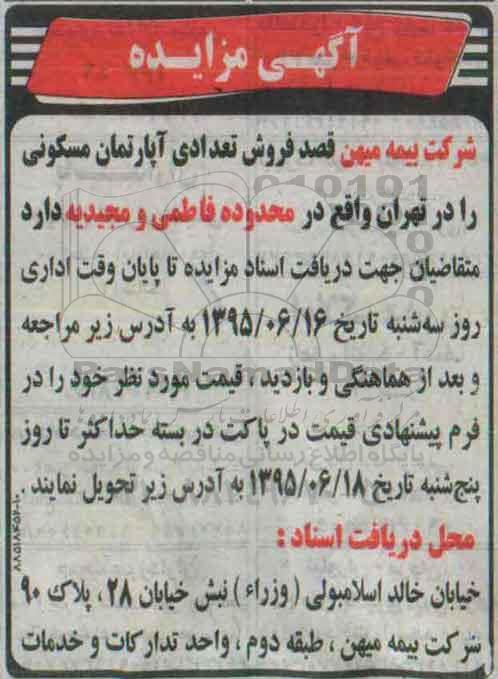 آگهی مزایده
شرکت بیمه میهن قصد فروش تعدادی آپارتمان مسکونی
را در تهران واقع در محدوده فاطمی و مجیدیه دارد
متقاضیان جهت دریافت اسناد مزایده تا پایان وقت اداری
روز سه‌شنبه تاریخ ۱۳۹۵/۰۶/۱۶ به آدرس زیر مراجعه
و بعد از هماهنگی و بازدید ، قیمت مورد نظر خود را در
فرم پیشنهادی قیمت در پاکت در بسته حداکثر تا روز
پنج‌شنبه تاریخ ۱۳۹۵/۰۶/۱۸ به آدرس زیر تحویل نمایند .
محل دریافت اسناد :
خیابان خالد اسلامبولی ( وزراء ) نبش خیابان ۲۸ ، پلاک ۹۰
شرکت بیمه میهن ، طبقه دوم ، واحد تدارکات و خدمات
ParsNamadData
پایگاه اطلاع رسانی مناقصه و مزایده